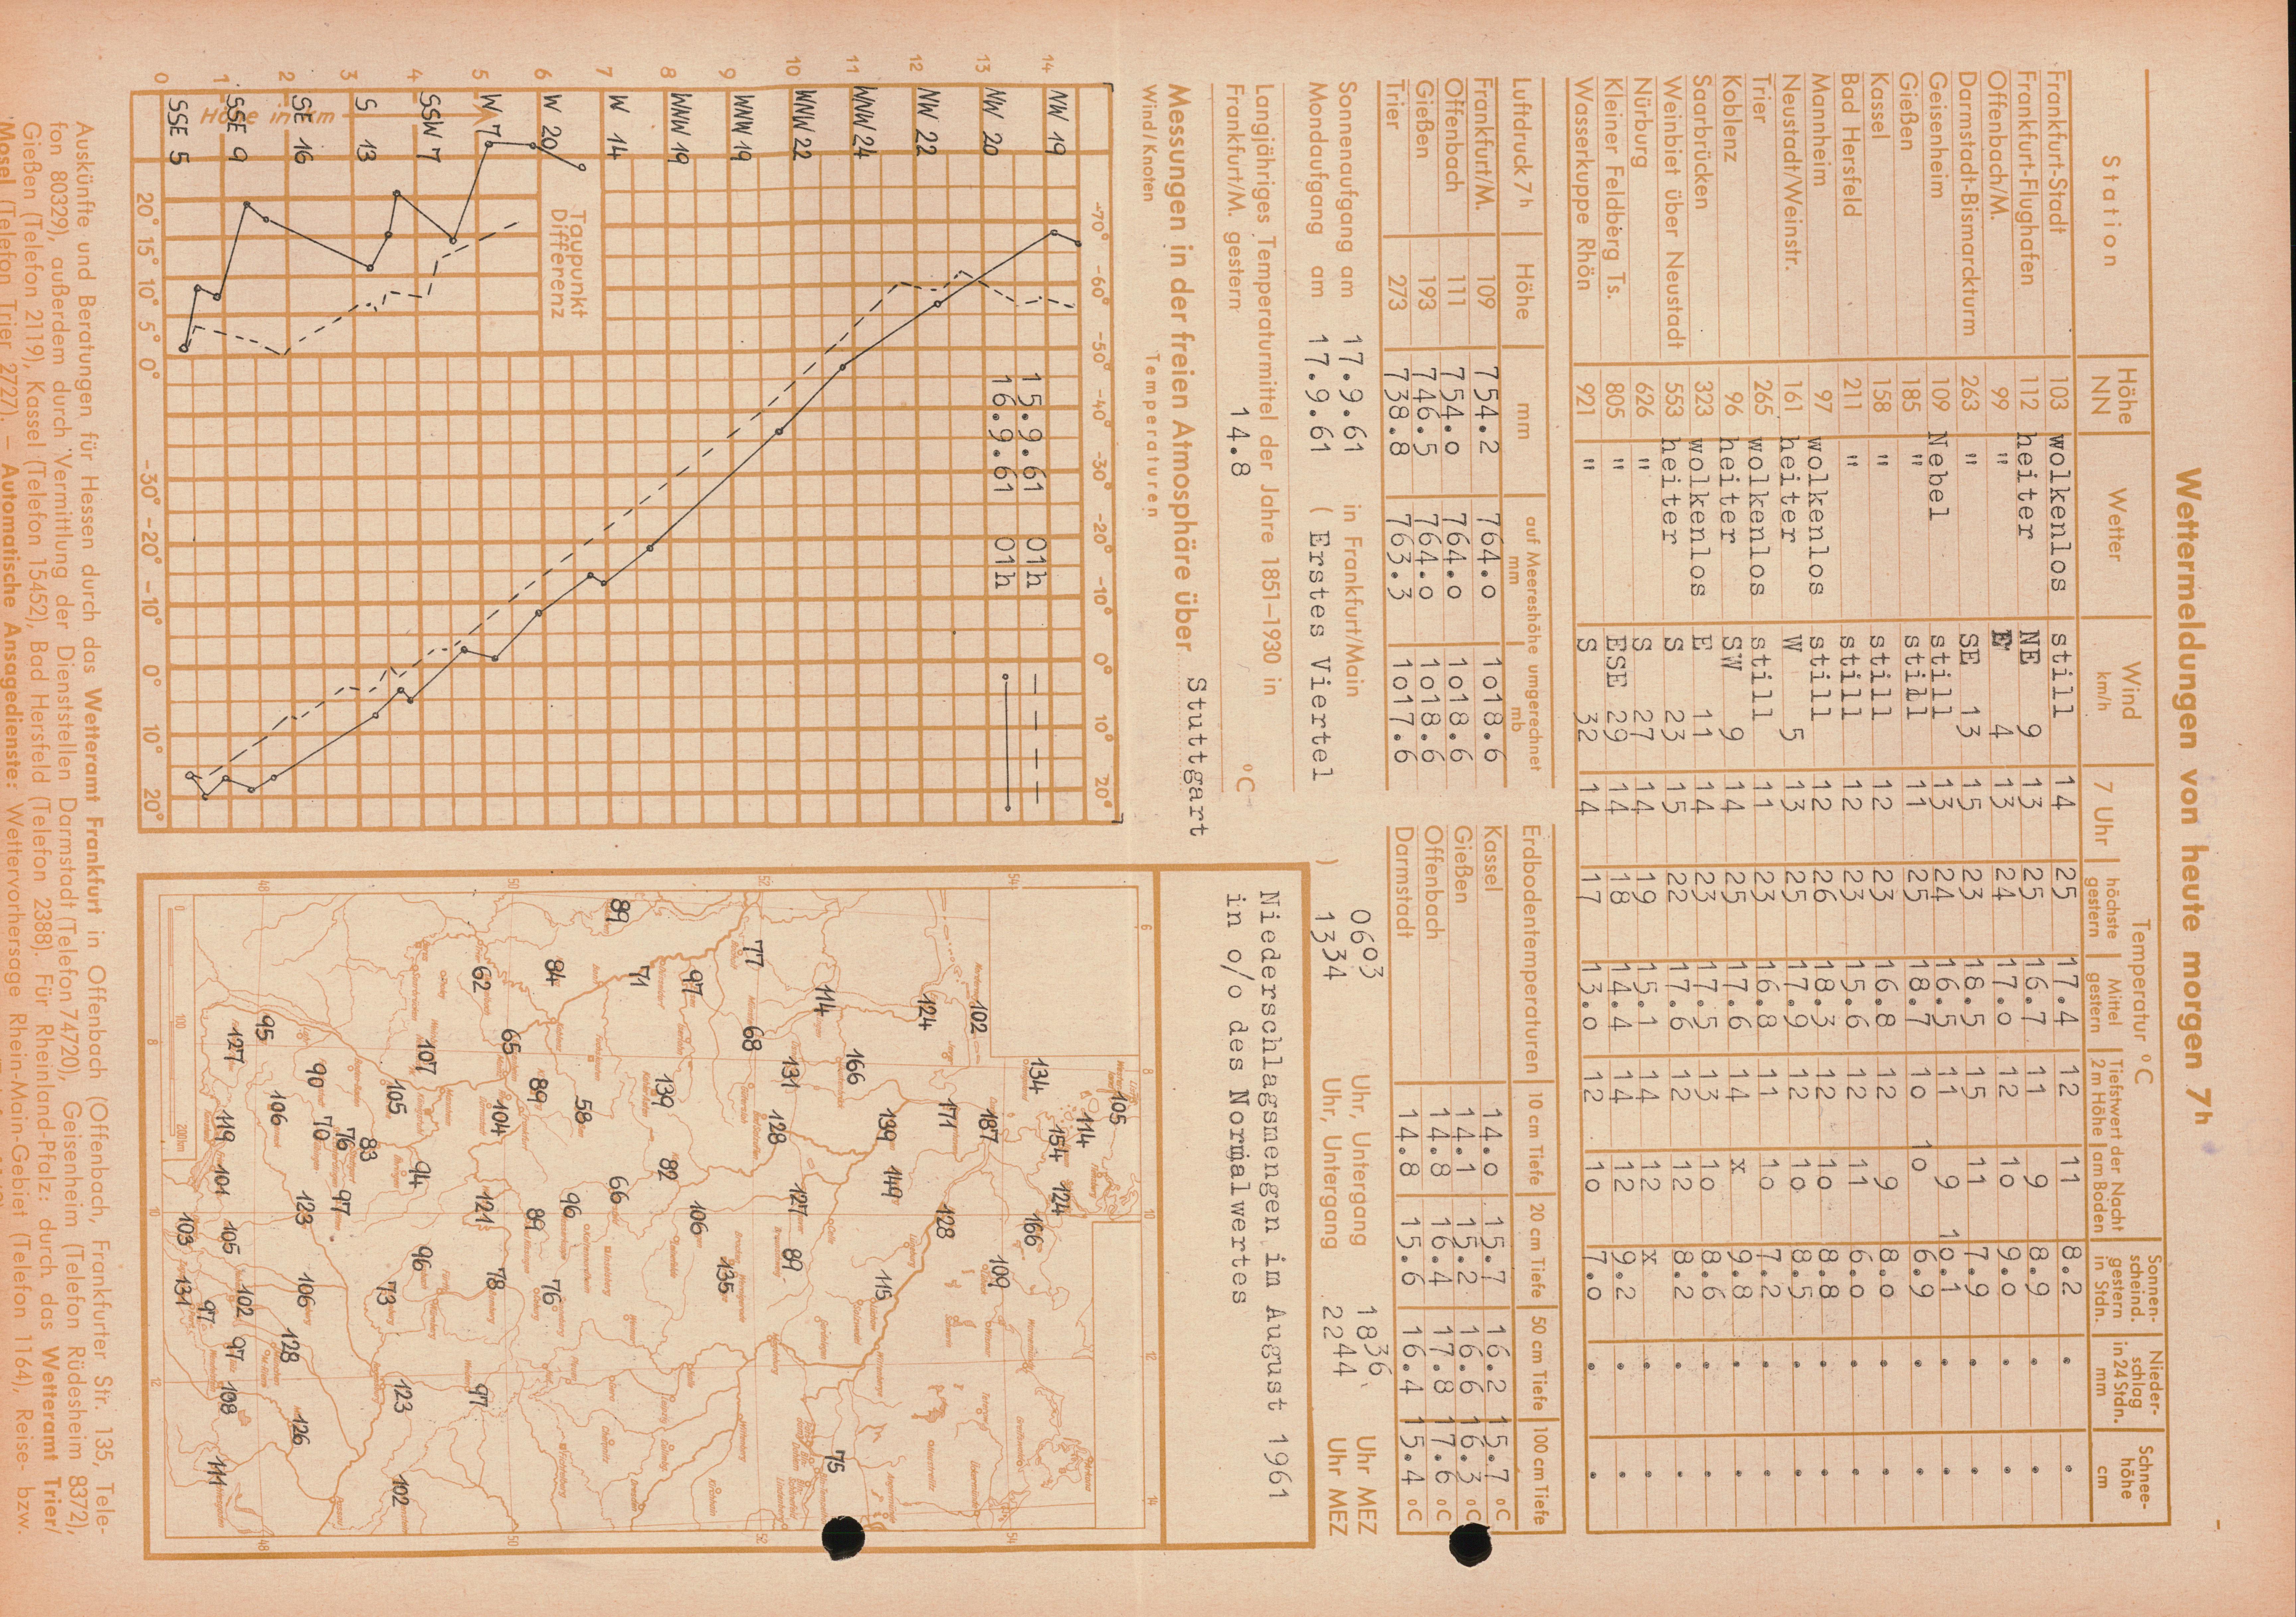 Wettermeldungen von heute morgen 7h
Station | Höhe NN | Wetter | Wind km/h | Temperatur °C: 7 Uhr | höchste gestern | Mittel gestern | Tiefstwert der Nacht 2 m Höhe | am Boden | Sonnenscheind. gestern in Stdn. | Niederschlag in 24 Stdn. mm | Schneehöhe cm
Frankfurt-Stadt 103 wolkenlos still 14 25 17.4 12 11 8.2 . .
Frankfurt-Flughafen 112 heiter NE 9 13 25 16.7 11 9 8.9 . .
Offenbach/M. 99 " E 4 13 24 17.0 12 10 9.0 . .
Darmstadt-Bismarckturm 263 " SE 13 15 23 18.5 15 11 7.9 . .
Geisenheim 109 Nebel still 13 24 16.5 11 9 10.1 . .
Gießen 185 " still 11 25 18.7 10 10 6.9 . .
Kassel 158 " still 12 23 16.8 12 9 8.0 . .
Bad Hersfeld 211 " still 12 23 15.6 12 11 6.0 . .
Mannheim 97 wolkenlos still 12 26 18.3 12 10 8.8 . .
Neustadt/Weinstr. 161 heiter W 5 13 25 17.9 12 10 8.5 . .
Trier 265 wolkenlos still 11 23 16.8 11 10 7.2 . .
Koblenz 96 heiter SW 9 14 25 17.6 14 x 9.8 . .
Saarbrücken 323 wolkenlos E 11 14 23 17.5 13 10 8.6 . .
Weinbiet über Neustadt 553 heiter S 23 15 22 17.6 12 12 8.2 . .
Nürburg 626 " S 27 14 19 15.1 14 12 x . .
Kleiner Feldberg Ts. 805 " ESE 29 14 18 14.4 14 12 9.2 . .
Wasserkuppe Rhön 921 " S 32 14 17 13.0 12 10 7.0 . .
Luftdruck 7 h | Höhe | mm | auf Meereshöhe umgerechnet mm | mb
Frankfurt/M. 109 754.2 764.0 1018.6
Offenbach 111 754.0 764.0 1018.6
Gießen 193 746.5 764.0 1018.6
Trier 273 738.8 763.3 1017.6
Erdbodentemperaturen | 10 cm Tiefe | 20 cm Tiefe | 50 cm Tiefe | 100 cm Tiefe
Kassel 14.0 15.7 16.2 15.7 °C
Gießen 14.1 15.2 16.6 16.3 °C
Offenbach 14.8 16.4 17.8 17.6 °C
Darmstadt 14.8 15.6 16.4 15.4 °C
Sonnenaufgang am 17.9.61 in Frankfurt/Main 0603 Uhr, Untergang 1836 Uhr MEZ
Mondaufgang am 17.9.61 ( Erstes Viertel ) 1334 Uhr, Untergang 2244 Uhr MEZ
Langjähriges Temperaturmittel der Jahre 1851–1930 in
Frankfurt/M. gestern 14.8 °C
Messungen in der freien Atmosphäre über Stuttgart
Wind/Knoten Temperaturen
-70° -60° -50° -40° -30° -20° -10° 0° 10° 20°
15.9.61 01h – – – –
16.9.61 01h
14 NW 19
13 NW 20
12 NW 22
11 WNW 24
10 WNW 22
9 WNW 19
8 WNW 19
7 W 14
6 W 20
5 W 7
4 SSW 7
3 S 13
2 SE 16
1 SSE 9
0 SSE 5
Höhe in km
Taupunkt
Differenz
20° 15° 10° 5° 0° -30° -20° -10° 0° 10° 20°
Niederschlagsmengen im August 1961
in o/o des Normalwertes
6 8 10 12 14
54 52 50 48
105
134 114
154 124
102 187 166
124 171 128 109
114 166 139 149 115
77 68 131 128 127 89 75
97 139 82 106 135
71
89 58 66
84 89 96 89 76
62 65 104 121 78 97
107 94 96
105 73 123 102
83
90 70 76 97
95 106 123 106 128 126
127 119 101 105 102 97 108 111
103 134 97
0 100 200km
Auskünfte und Beratungen für Hessen durch das Wetteramt Frankfurt in Offenbach (Offenbach, Frankfurter Str. 135, Tele-
fon 80329), außerdem durch Vermittlung der Dienststellen Darmstadt (Telefon 74720), Geisenheim (Telefon Rüdesheim 8372),
Gießen (Telefon 2119), Kassel (Telefon 15452), Bad Hersfeld (Telefon 2388). Für Rheinland-Pfalz: durch das Wetteramt Trier/
Mosel (Telefon Trier 2727). — Automatische Ansagedienste: Wettervorhersage Rhein-Main-Gebiet (Telefon 1164), Reise- bzw.